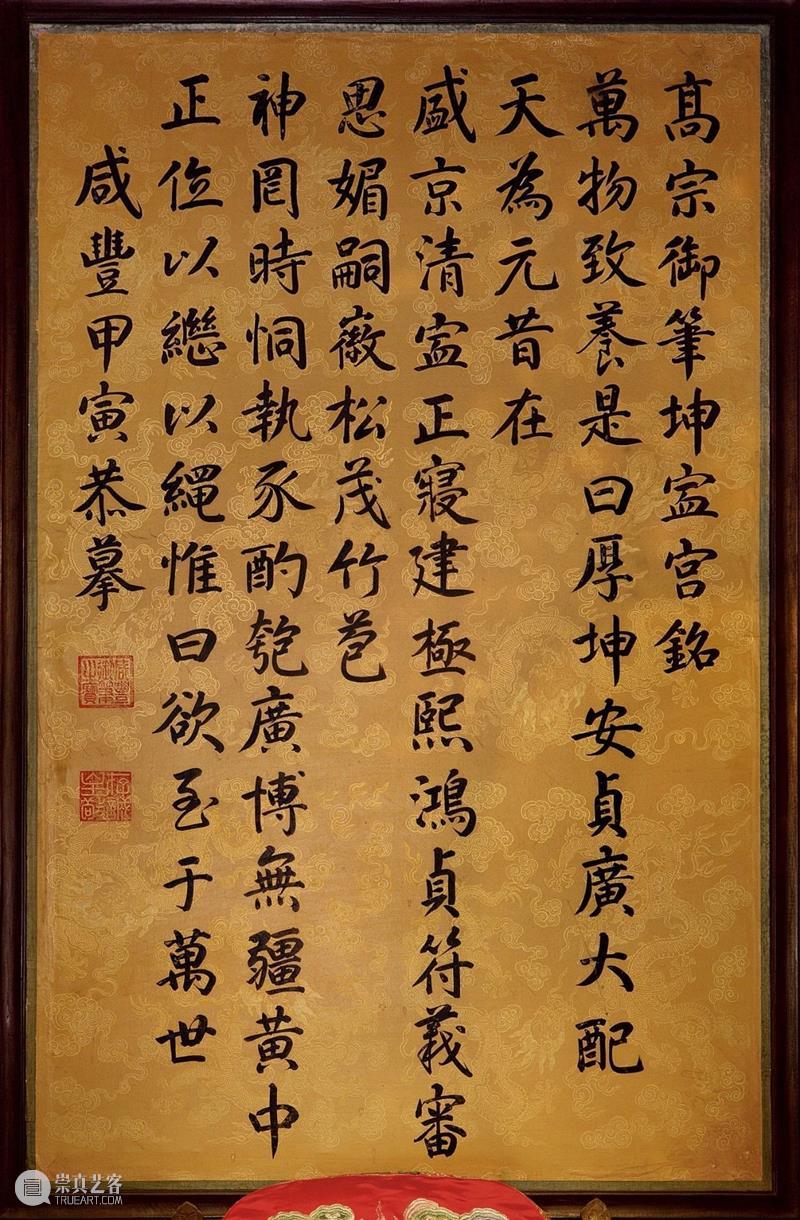 髙宗御筆坤寍宫銘
萬物致養是曰厚坤安貞廣大配
天為元昔在
盛京清寍正寢建極熙鴻貞符義審
思媚嗣徽松茂竹苞
神罔時恫執豕酌匏廣博無疆黄中
正位以繼以繩惟曰欲至于萬世
咸豐甲寅恭摹
咸豐御筆之寶
崇真艺客
TRUEART.COM